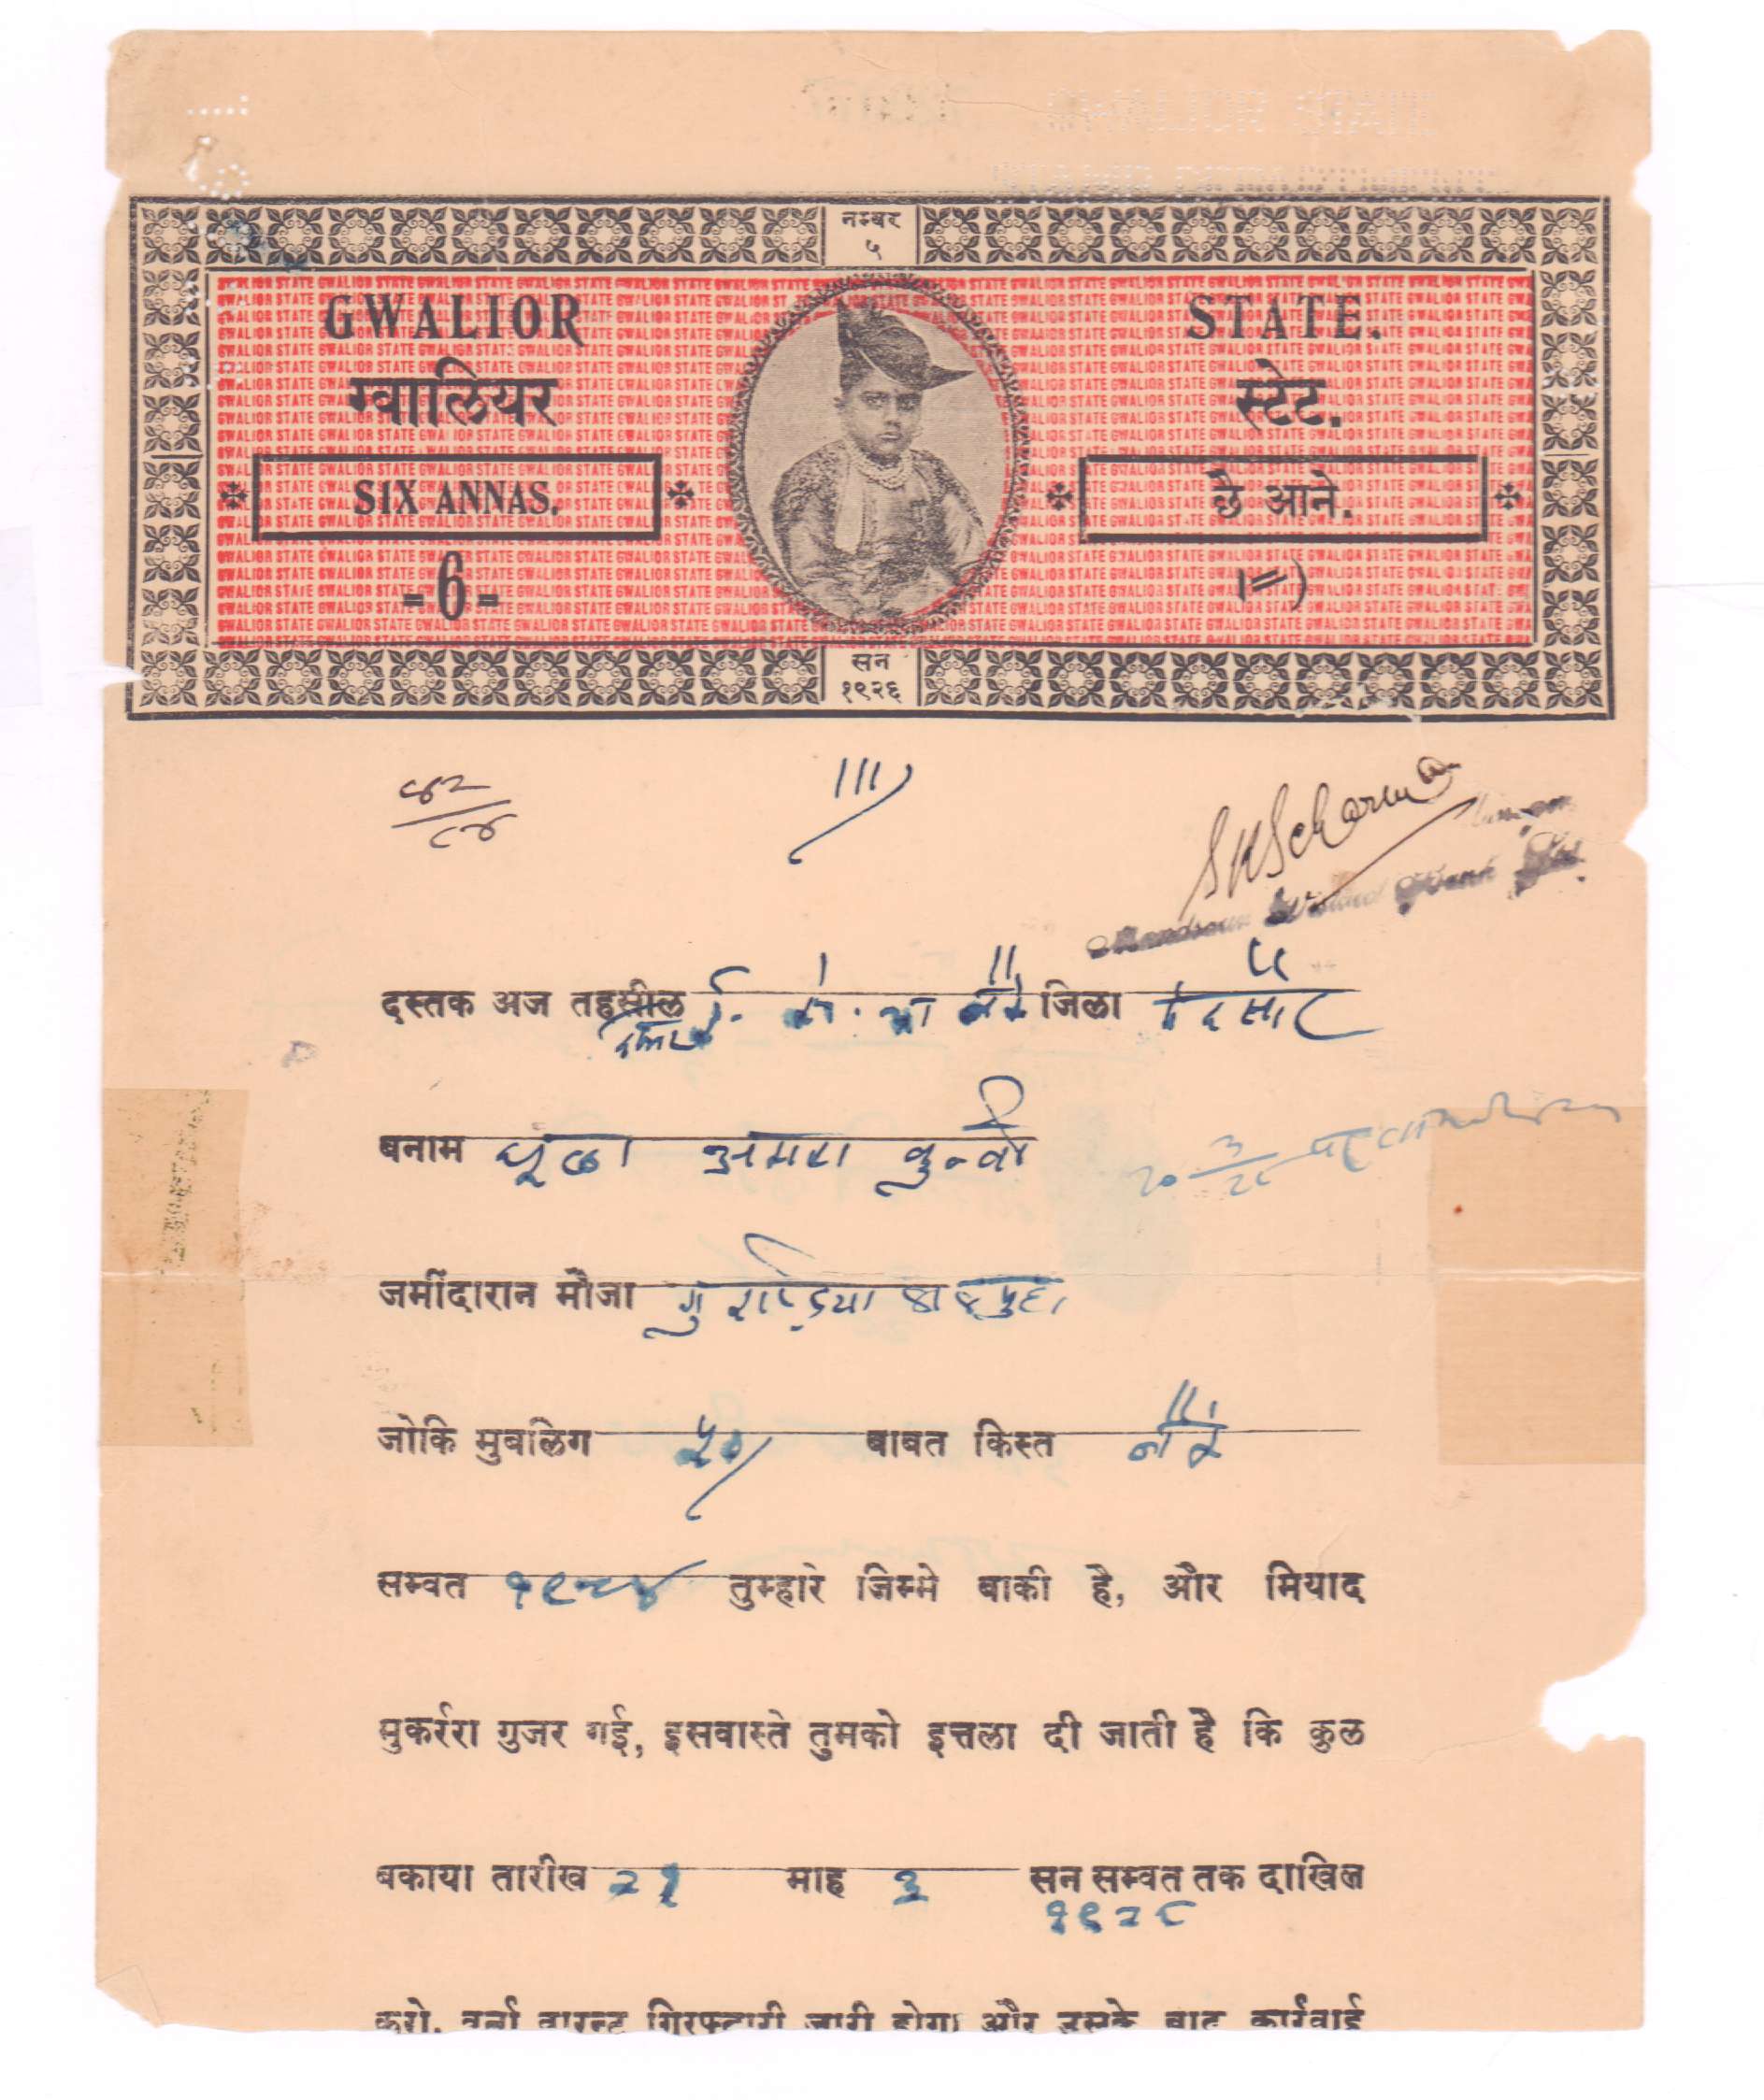 GWALIOR STATE
STAMP DEPARTMENT
नम्बर
५
GWALIOR STATE.
ग्वालियर स्टेट.
SIX ANNAS. छै आने.
-6- ।=)
सन
१९२६
111)
Mandsaur Bank
दस्तक अज तहसील जिला
बनाम धूला अमरा कुन्बी
जमींदारान मौजा गुराड़िया
जोकि मुबलिग ५०) बाबत किस्त
सम्वत १९८४ तुम्हारे जिम्मे बाकी है, और मियाद
मुकर्ररा गुजर गई, इसवास्ते तुमको इत्तला दी जाती है कि कुल
बकाया तारीख २१ माह ३ सन सम्वत तक दाखिल
१९२८
करो, वर्ना वारन्ट गिरफ्तारी जारी होगा और उसके बाद कार्रवाई